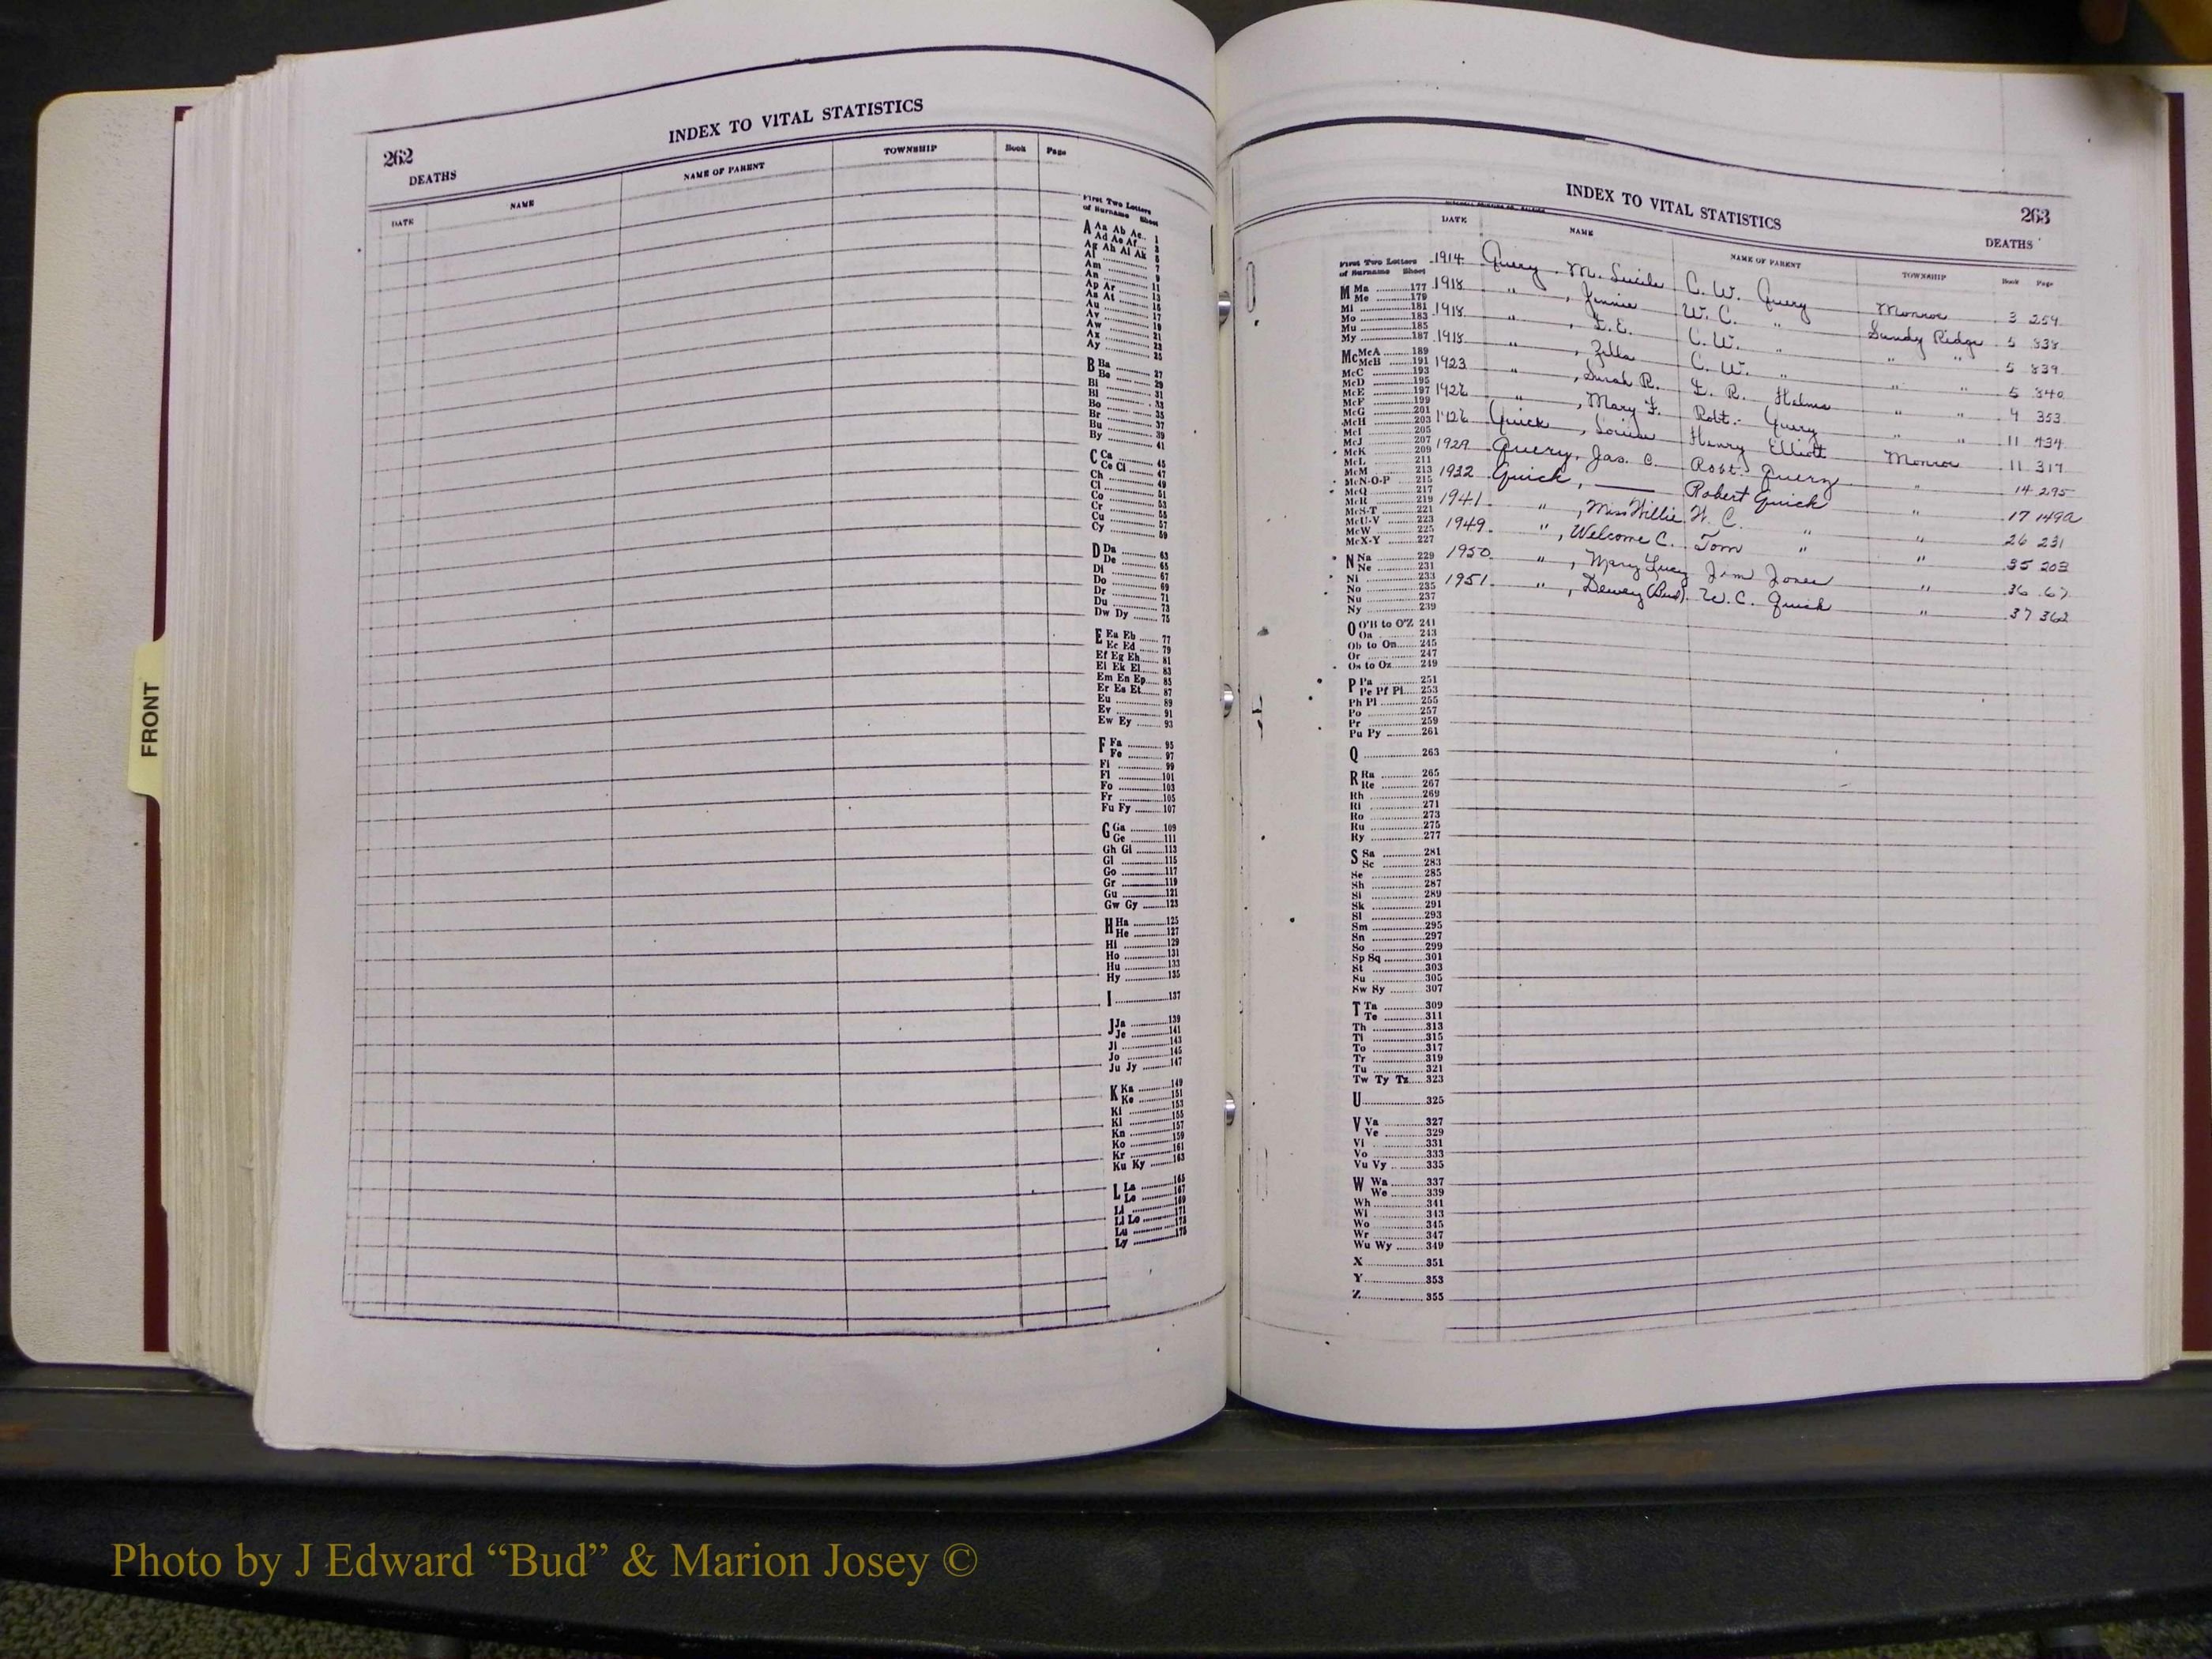 FRONT
262
INDEX TO VITAL STATISTICS
DEATHS
DATE NAME NAME OF PARENT TOWNSHIP Book Page
First Two Letters
of Surname Sheet
A Aa Ab Ac.. 1
Ad Ae Af... 3
Ag Ah Ai Ak 5
Al ............ 7
Am ............ 9
An ............ 11
Ap Ar ........ 13
As At ........ 15
Au ............ 17
Av ............ 19
Aw ............ 21
Ax ............ 23
Ay ............ 25
B Ba ........ 27
Be ........ 29
Bi ............ 31
Bl ............ 33
Bo ............ 35
Br ............ 37
Bu ............ 39
By ............ 41
C Ca ........ 45
Ce Ci ........ 47
Ch ............ 49
Cl ............ 51
Co ............ 53
Cr ............ 55
Cu ............ 57
Cy ............ 59
D Da ........ 63
De ........ 65
Di ............ 67
Do ............ 69
Dr ............ 71
Du ............ 73
Dw Dy ...... 75
E Ea Eb ...... 77
Ec Ed ...... 79
Ef Eg Eh..... 81
Ei Ek El..... 83
Em En Ep.... 85
Er Es Et..... 87
Eu ............ 89
Ev ............ 91
Ew Ey ........ 93
F Fa ........ 95
Fe ........ 97
Fi ............ 99
Fl ............101
Fo ............103
Fr ............105
Fu Fy ........107
G Ga ........109
Ge ........111
Gh Gi ........113
Gl ............115
Go ............117
Gr ............119
Gu ............121
Gw Gy ......123
H Ha ........125
He ........127
Hi ............129
Ho ............131
Hu ............133
Hy ............135
I ................137
J Ja ........139
Je ........141
Ji ............143
Jo ............145
Ju Jy ........147
K Ka ........149
Ke ........151
Ki ............153
Kl ............155
Kn ............157
Ko ............159
Kr ............161
Ku Ky ......163
L La ........165
Le ........167
Li ............169
Ll Lo ........171
Lu ............173
Ly ............175
INDEX TO VITAL STATISTICS
263
DEATHS
DATE NAME NAME OF PARENT TOWNSHIP Book Page
First Two Letters
of Surname Sheet
M Ma ........177
Me ........179
Mi ............181
Mo ............183
Mu ............185
My ............187
Mc McA ...... 189
McB ...... 191
McC ........ 193
McD ........ 195
McE ........ 197
McF ........ 199
McG ........ 201
McH ........ 203
McI ........ 205
McJ ........ 207
McK ........ 209
McL ........ 211
McM ........ 213
McN-O-P ... 215
McQ ........ 217
McR ........ 219
McS-T ...... 221
McU-V ...... 223
McW ........ 225
McX-Y ...... 227
N Na ........ 229
Ne ........ 231
Ni ............ 233
No ............ 235
Nu ............ 237
Ny ............ 239
O O'B to O'Z 241
Oa ........ 243
Ob to On..... 245
Or ............ 247
Os to Oz..... 249
P Pa ........ 251
Pe Pf Pi.... 253
Ph Pl ........ 255
Po ............ 257
Pr ............ 259
Pu Py ........ 261
Q ................ 263
R Ra ........ 265
Re ........ 267
Rh ............ 269
Ri ............ 271
Ro ............ 273
Ru ............ 275
Ry ............ 277
S Sa ........ 281
Sc ........ 283
Se ............ 285
Sh ............ 287
Si ............ 289
Sk ............ 291
Sl ............ 293
Sm ............ 295
Sn ............ 297
So ............ 299
Sp Sq ........ 301
St ............ 303
Su ............ 305
Sw Sy ........ 307
T Ta ........ 309
Te ........ 311
Th ............ 313
Ti ............ 315
To ............ 317
Tr ............ 319
Tu ............ 321
Tw Ty Tz.... 323
U................ 325
V Va ........ 327
Ve ........ 329
Vi ............ 331
Vo ............ 333
Vu Vy ....... 335
W Wa ........ 337
We ........ 339
Wh ............ 341
Wi ............ 343
Wo ............ 345
Wr ............ 347
Wu Wy ....... 349
X ................ 351
Y................ 353
Z................ 355
1914 Query, M. Lucile C. W. Query Monroe 3 259
1918 " , Jinnie W. C. " Sandy Ridge 5 838
1918 " , L. E. C. W. " " " 5 839
1918 " , Zilla C. W. " " " 5 840
1923 " , Sarah R. L. R. Helms " " 9 353
1926 " , Mary F. Robt. Query " " 11 434
1926 Quick, Louise Henry Elliott Monroe 11 317
1929 Query, Jas. C. Robt. Query " 14 295
1932 Quick, —— Robert Quick " 17 149a
1941 " , Miss Willie W. C. " " 26 231
1949 " , Welcome C. Tom " " 35 203
1950 " , Mary Lucy Jim Jones " 36 67
1951 " , Dewey (Bud) W. C. Quick " 37 362
Photo by J Edward “Bud” & Marion Josey ©